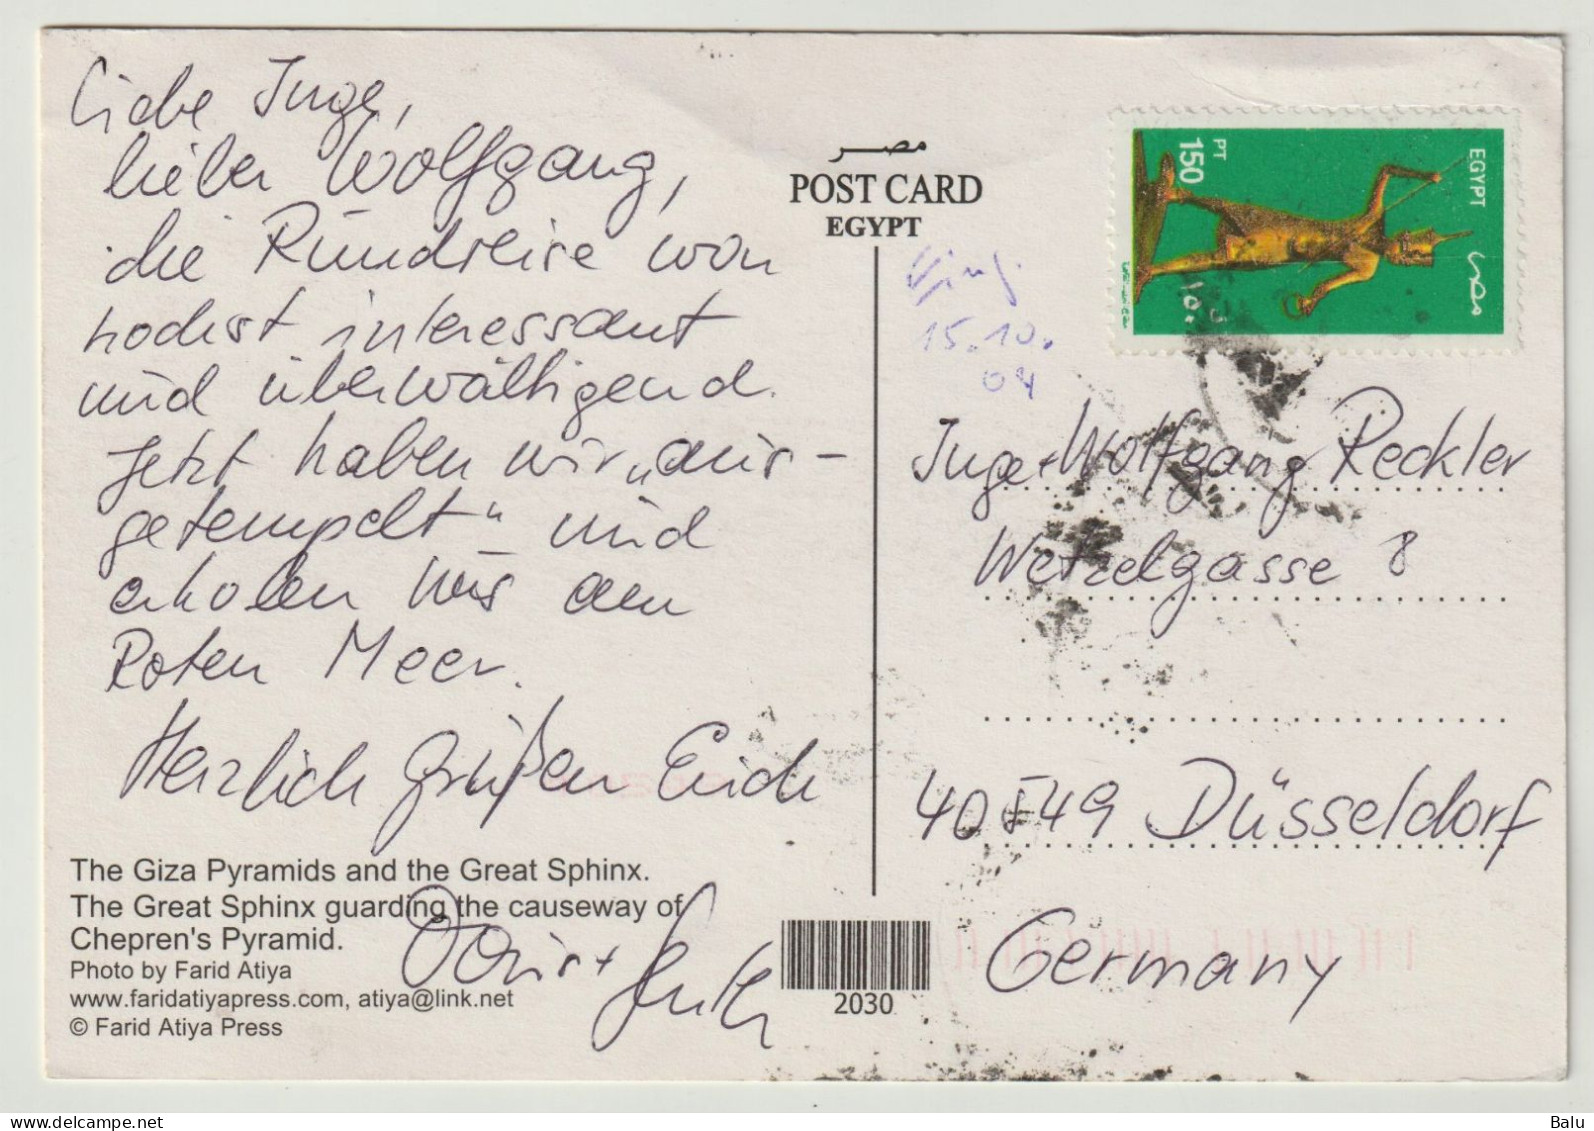 Liebe Inge,
lieber Wolfgang,
die Rundreise war
höchst interessant
und überwältigend.
Jetzt haben wir „aus-
getempelt“ und
erholen uns am
Roten Meer.
Herzlich grüßen Euch
Doris +
The Giza Pyramids and the Great Sphinx.
The Great Sphinx guarding the causeway of
Chepren's Pyramid.
Photo by Farid Atiya
www.faridatiyapress.com, atiya@link.net
© Farid Atiya Press
مصر
POST CARD
EGYPT
2030
EGYPT
مصر
PT
150
15.10.
04
Inge + Wolfgang Reckler
Wetzelgasse 8
40549 Düsseldorf
Germany
Balu